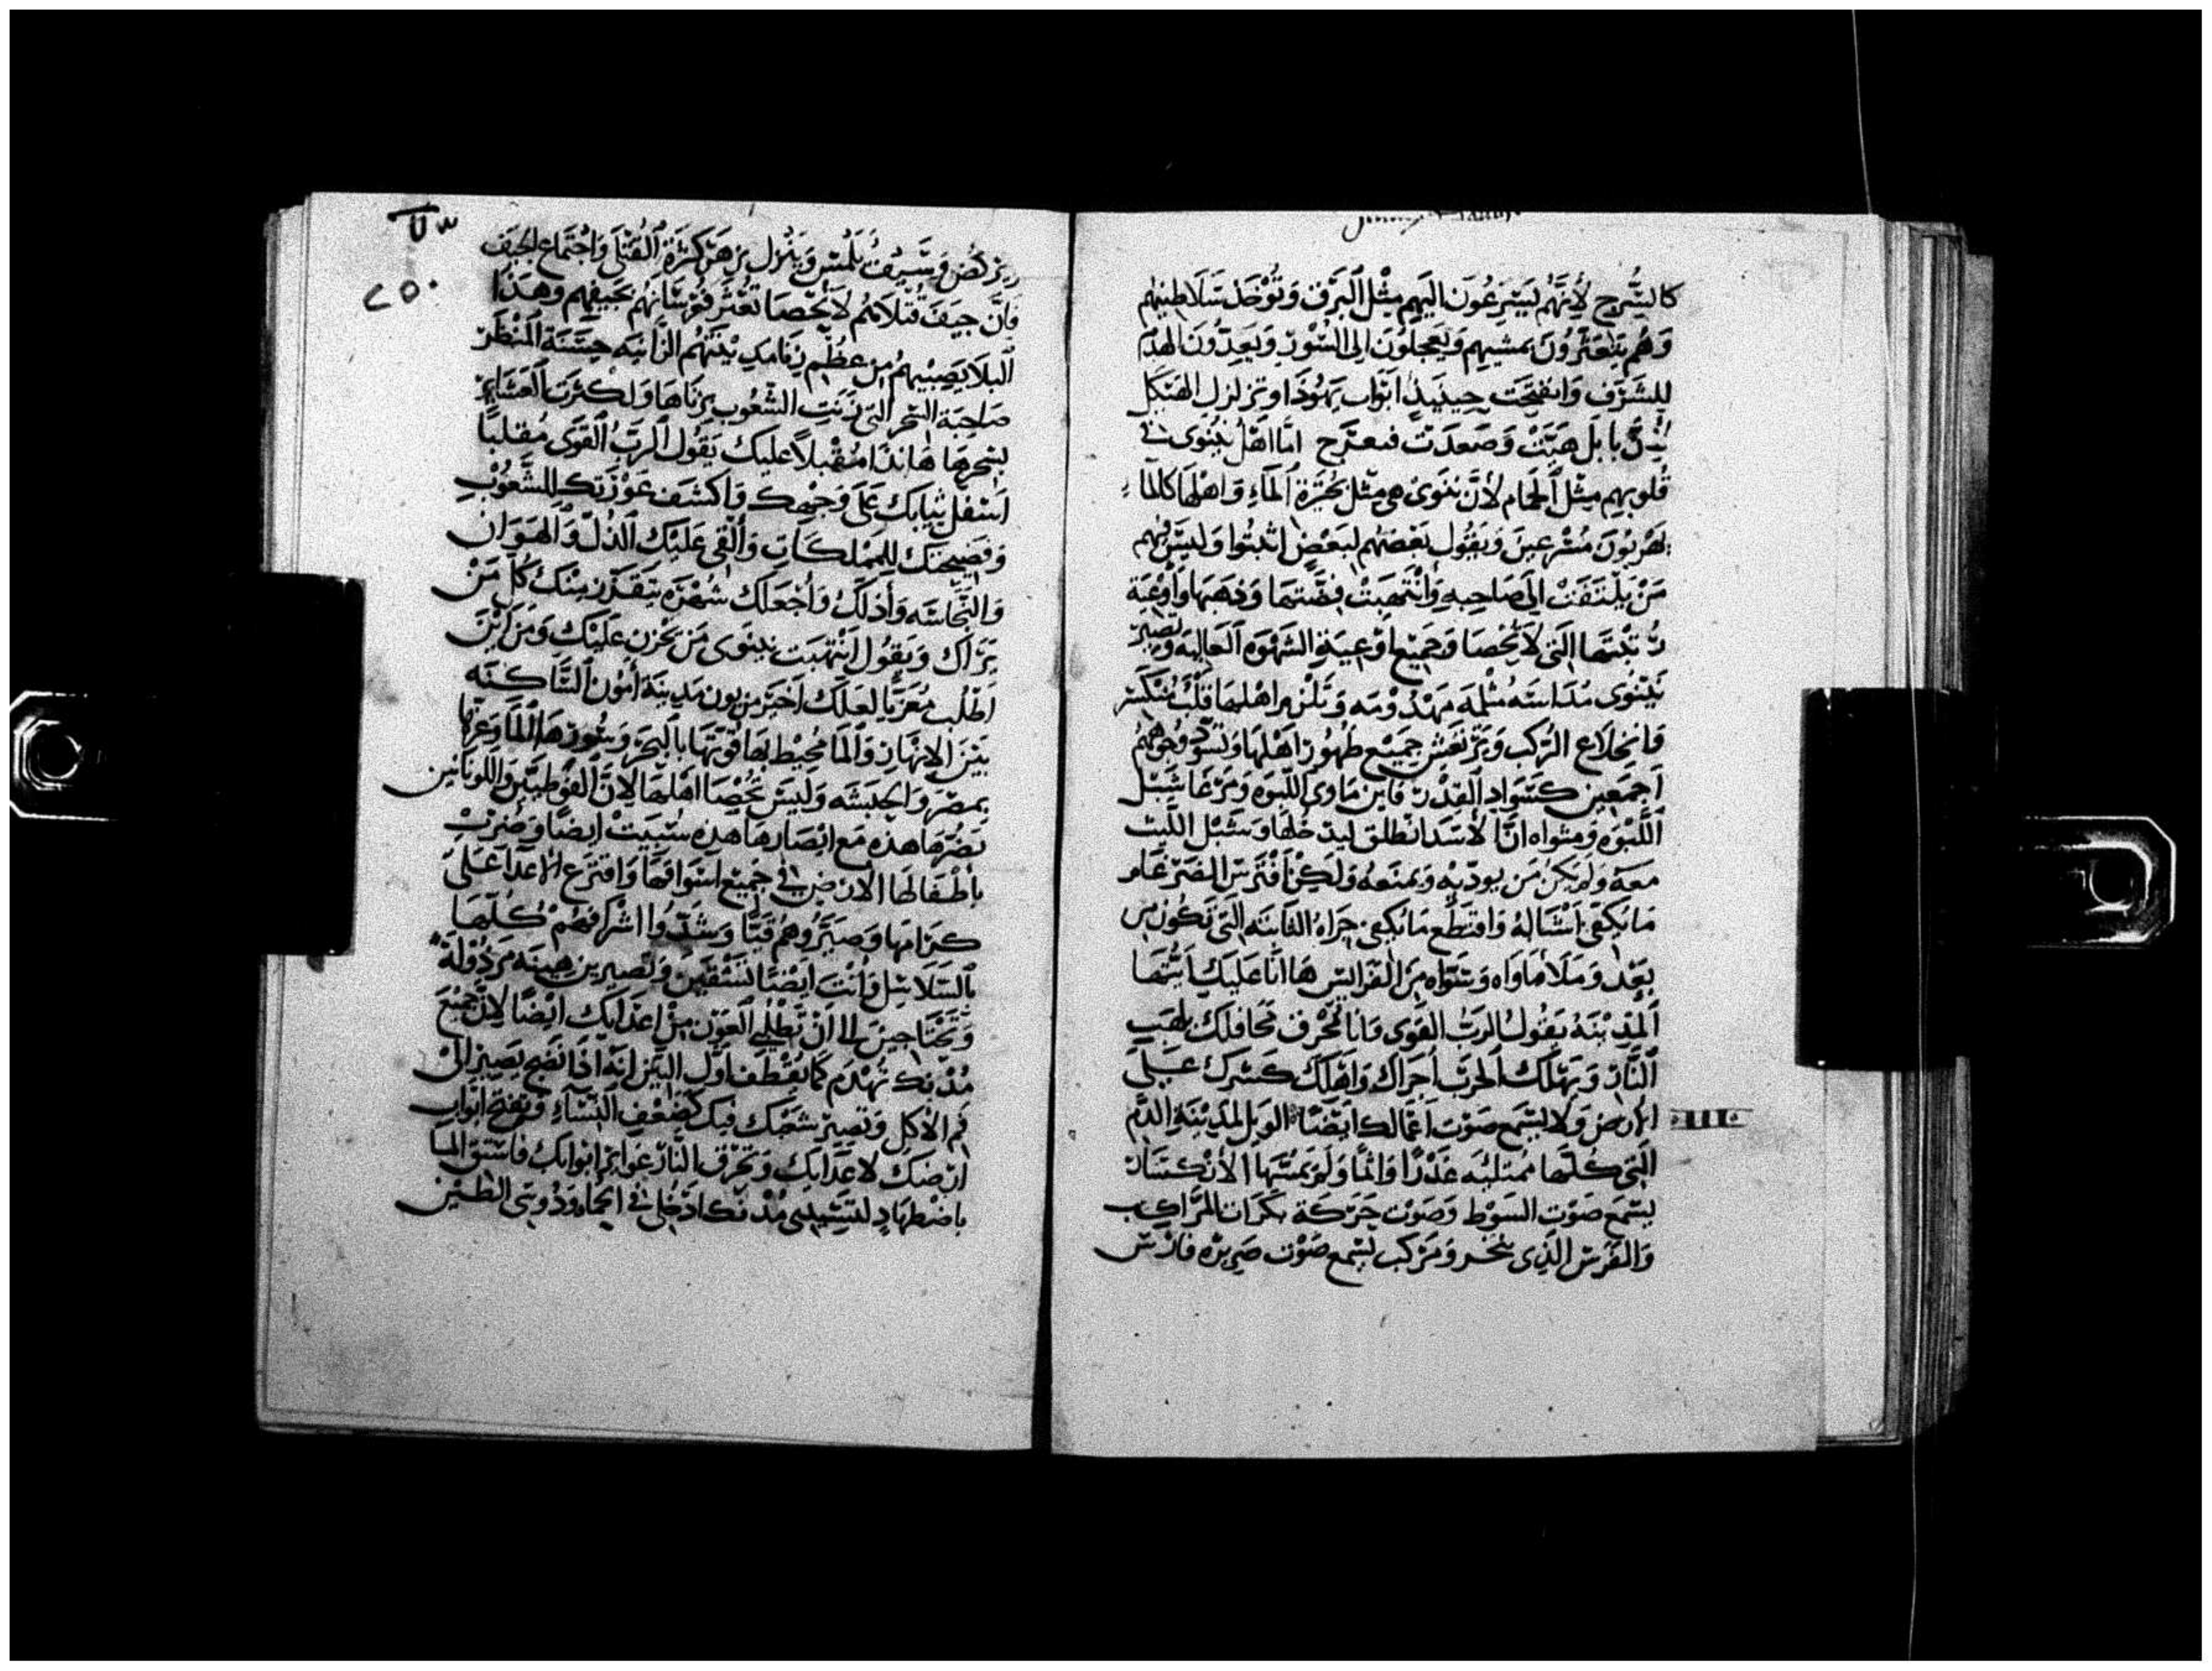 كالسُّرج لأنَّهُم يَسْرِعُونَ اليَهِم مِثْل اَلبَرْق وَتُوْخَذ سَلَاطِينهُم
وَهُم يتَعَثَرُونَ بمَشيهِم وَيَعجلُونَ الى السُّوْرِ وَيَعِدّونَ الهَدْم
للشَرف وَانفتحَت حِينَيذٍ ابَوَّاب يَهُوْذَا وتزلزل الهَيكَل
بابل هَبَّتْ وَصَعدَت اما اهْل نينوى في
قُلوبهِم مِثْل اَلحَمام لأنَّ نينَوىَ هى مثْل بُحَيرَة اَلمآءِ وَاهْلهَا كالمآء
يَهْربُونَ مُسْرعينَ وَيقُول بَعْضَهُم لبَعْضٍ اثبتُوا وَليسَ لهُم
مَنْ يَلْتَفت الى صَاحِبه وَانتَهبَتْ فِضَّتهَا وَذهَبهَا وَاوْعيَة
زينَتهَا الَتى لاَ تُحْصَا وَجَميع اوْعِيَةِ الشَهْوَه العَاليَه وَتصيرْ
نَيْنَوى مُدَاسَه مثْلمَه مَهْدُوْمَه وَ اهْلهَا قَلْب مُنكَسر
فَانخلاَع الرُكب وَتَرْتعش جَميْع ظهُور اهْلهَا وَتسْودّ وجُوههُم
اَجمَعين كسَوَاد القِدْر فاين مَاوى اللبوَه وَمَرْعَا شبْل
اللَّبْوَه وَمثواه انَّا لاسَد انطلق ليدخلهَا وَشبْل اللَّيث
معَهَ وَلم يكنْ مَن يوذيه وَيمنَعه وَلكِن افْتَرس الضرغَام
مَا يَكفي اَشبَاله وَاقتطَع مَا يَكفي جرَاه التى تَكون من
بَعد وَمَلا مَاوَاه وَ مِن الفَرايس هَا انا عَليَك ايَتُهَا
اَلمَدِيْنَهُ يَقُولُ الرَبّ القَوى وَانَا محْرق محَافلك بلهَيب
النَّار وَيَهْلك الحرب اَجرَاك وَاهَلك كسرك عَلى
الارض وَلا يسْمع صَوْت اعمَالك ايَضًا الويل لمَديْنَةِ الدَّم
التى كلهَا ممْتَليَه غدْرًا وَاثْمًا وَلم يَمسهَا الاْنْكسَار
يسْمع صَوْت السَوط وَصَوْت حَرَكة بَكرَات المرَاكب
وَالفَرَس الَّذى ينخر وَمَركب يسْمع صَوْت صَريره فارس
٢٥٠
يركض وَسَيف يُلمّس وَينْزل كثْرَة القَتْلى وَاجْتمَاع الجيَف
فانَّ جيَفَ قتْلاَهُم لاَ تحْصَا تَعْثر فرْسَانهُم بجيفهم وهَذَا
اَلبَلاَ يصِيْبهمْ من عظْم زنَا مَدينَتهم الزَّانيَه حِسَنَة المَنظَر
صَاحِبَة السِّحر التى زنَت الشّعُوب بزنَاهَا وَلكثرَت العشاير
بسِحْرهَا هَا نَذَا مُقْبلاً عَليك يَقُول الرَبُ القَوى مُقلبًا
اسْفل ثيابك عَلى وَجْهك وَاكشف عَوْرَتك للشعُوْب
وَفضيحَتك للمَمْلكَات وَالقى عَلَيْك الذُلّ وَالهَوَان
وَالنجَّاسَه وَأذلكُ وَاجْعَلك شهْرَه يَتقَذَّر منْك كُل مَنْ
يَرَاك وَيقُول انتُهبَت نينَوى مَن يَحْزن عليْك وَمن اَيْنَ
اَطْلب معَزّيًا لعَلك اَخيرَ من يون مَدينَة أمون السَّاكنَه
بَيْنَ الانهَار وَالمَا مُحيْط بهَا قوّتَهَا بالبحَر وَسُورهَا المَا وَعزها
بمصْر وَالحبَشه وَليسَ يحْصَا اهْلهَا لانَّ القوطيّين وَاللوبيَانين
نصْرهَا هذه مَع انصَارهَا هذه سُبيَتْ ايضًا وَضُربْ
باطْفَالهَا الارض في جَميْع اسَوَاقهَا وَاقترَع الاعدَا عَلى
كرَامهَا وَصَيَّرُوهم وَشَدّوا اشْرافهُمْ كُلهَا
بالسَلاَسِل وَانت ايْضًا تسْتقين وَتصيرين مَرذُوْلَةً
وَتحْتَاجينَ الى انْ تَطْلبي العَوْن مِنْ اعْدَايك ايْضًا لاِنَّ جَميْعَ
مُدْنك تهْدَم كمَا يقْطَف اوّل التين انه اذَا نضج يصير الىْ
فم الاكل وَتصيرُ شعبَك فيك كضعْف النسَآءِ وَتفتح ابْوَاب
ارضك لاعدَايك وَتحرق النَّار ابْوَابك فاسْتَقى المَا
باضطهَادٍ لتشيدى مُدْنك ادخلي في وَذُوسى الطين